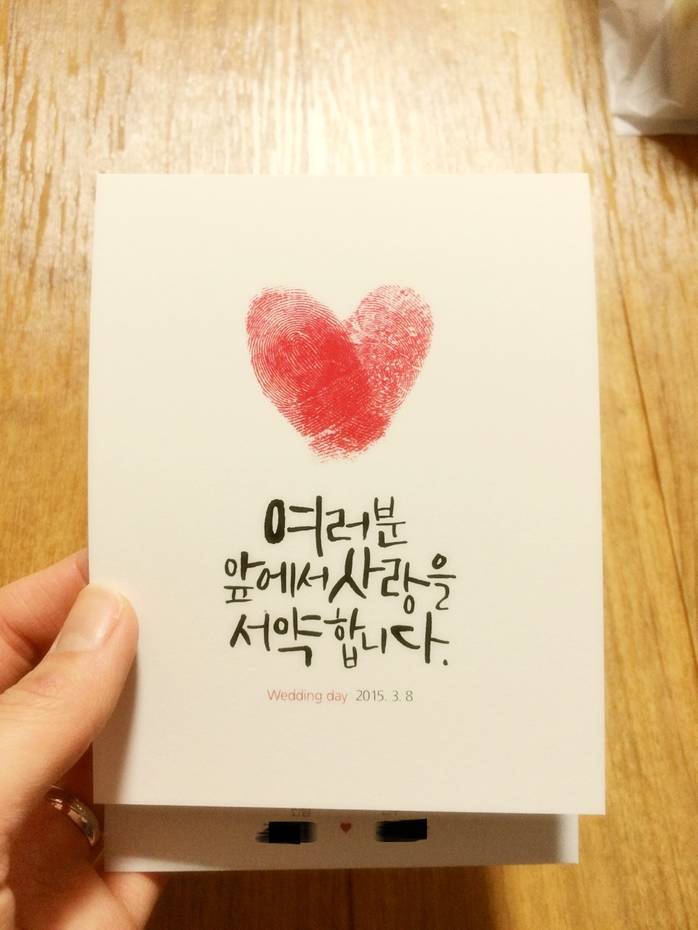 여러분
앞에서 사랑을
서약합니다.
Wedding day 2015. 3. 8